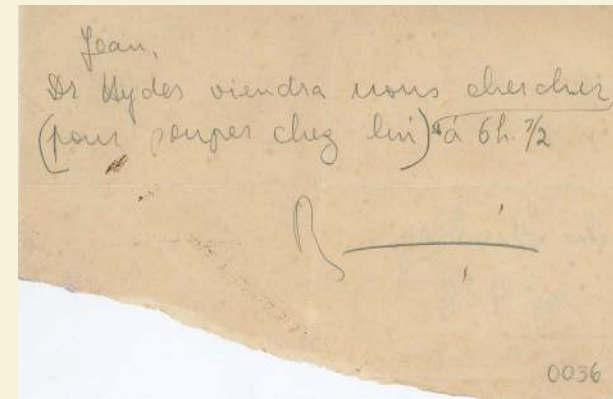 Jean,
Dr Hyder viendra nous chercher
(pour souper chez lui) à 6h. 1/2
R
0036